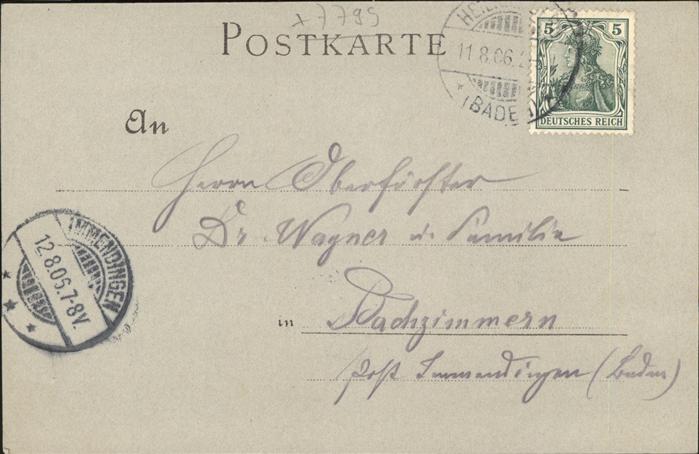 +7795
POSTKARTE
11.8.06
(BADEN)
5 5
DEUTSCHES REICH
An
Herrn Oberförster
Dr. Wagner u. Familie
in Bachzimmern
Post Immendingen (Baden)
IMMENDINGEN
12.8.06.7-8V.